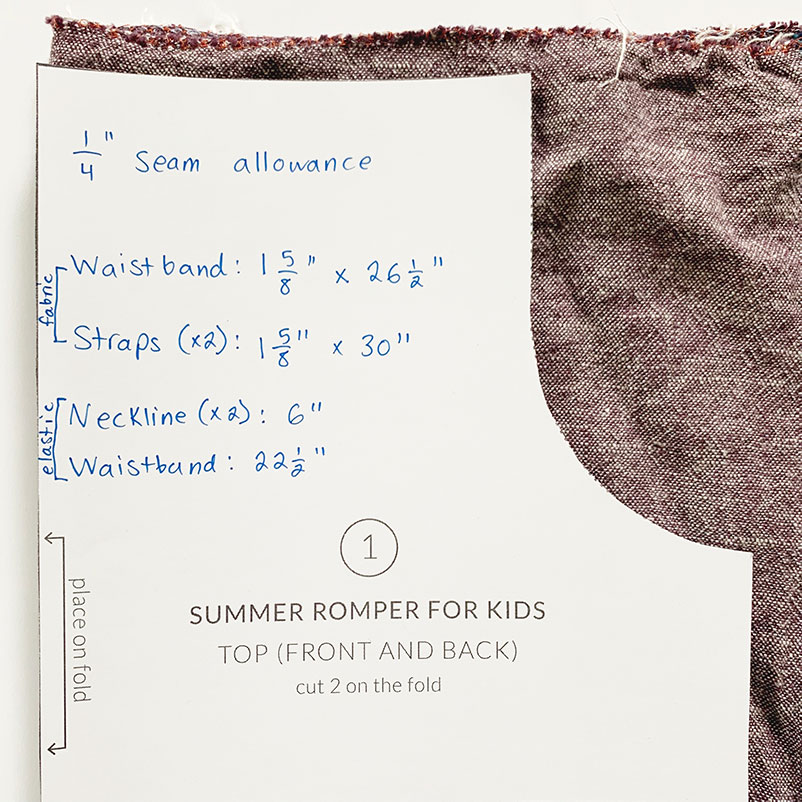 1/4" Seam allowance
fabric
Waistband: 1 5/8" x 26 1/2"
Straps (x2): 1 5/8" x 30"
elastic
Neckline (x2): 6"
Waistband: 22 1/2"
1
place on fold
SUMMER ROMPER FOR KIDS
TOP (FRONT AND BACK)
cut 2 on the fold